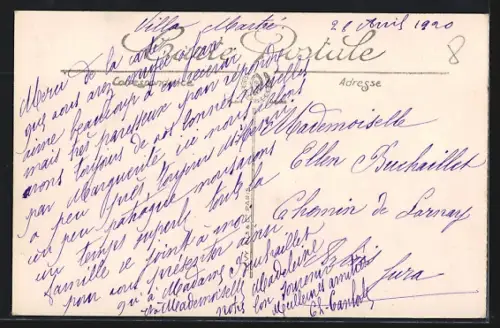 Villa Martré
28 Avril 1920
8
Carte Postale
Correspondance
Adresse
Merci de la carte
que vous avez envoyée à Jean
aime beaucoup à en recevoir
mais très paresseux pour répondre
avons toujours de vos bonnes nouvelles
par Marguerite, ici nous allons
à peu près toujours
un peu jusqu'à
un temps superbe toute la
famille se joint à moi
pour vous présenter ainsi
qu'à Madame Buchaillet
et Mademoiselle Madeleine
nos bon souvenir
Meilleures amitiés
Mademoiselle
Ellen Buchaillet
Chemin de Larnay
Jura